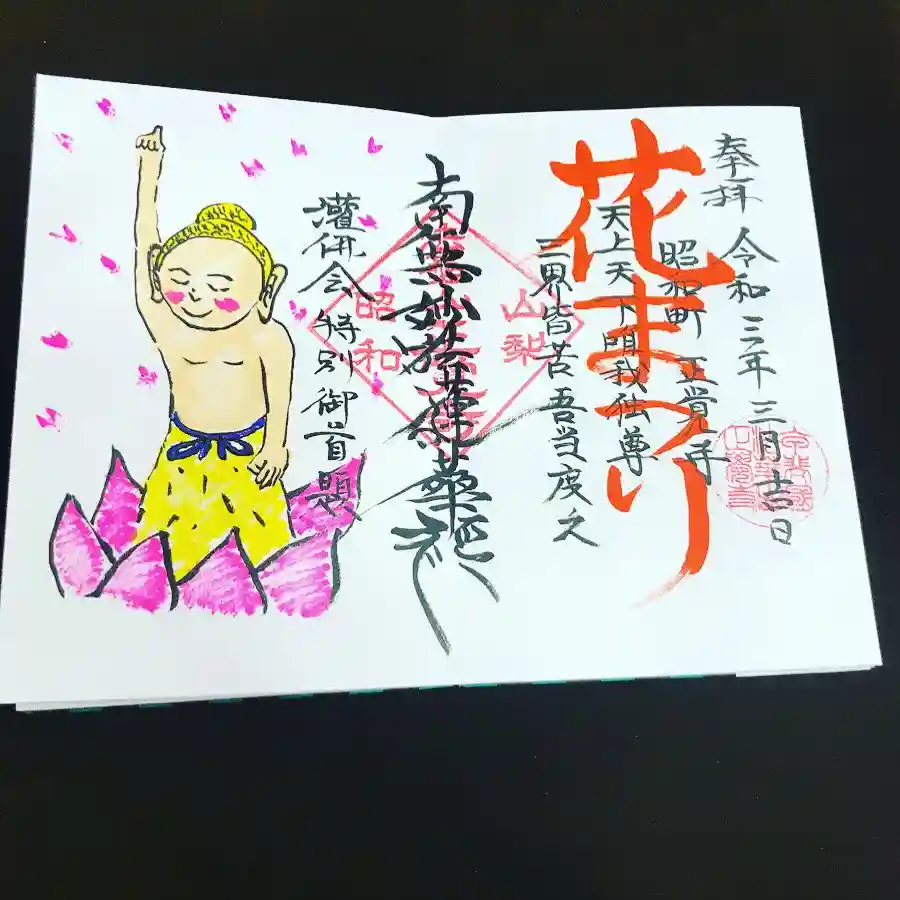 奉拝 令和三年 三月吉日
昭和町 正覚寺
花まつり
天上天下唯我独尊
三界皆苦吾当度之
南無妙法蓮華経
山梨
昭和
灌佛会特別御首題